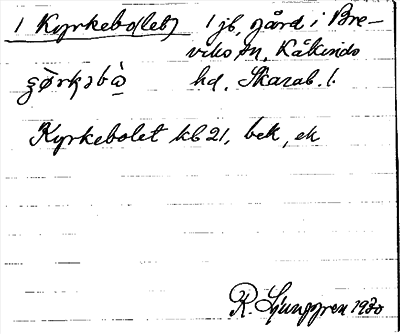 1 Kyrkebo(let) 1 jb. gård i Bre-
viks sn, Kåkinds
hd. Skarab. l.
Kyrkebolet kb 21, bek, ek
R. Ljunggren 1920